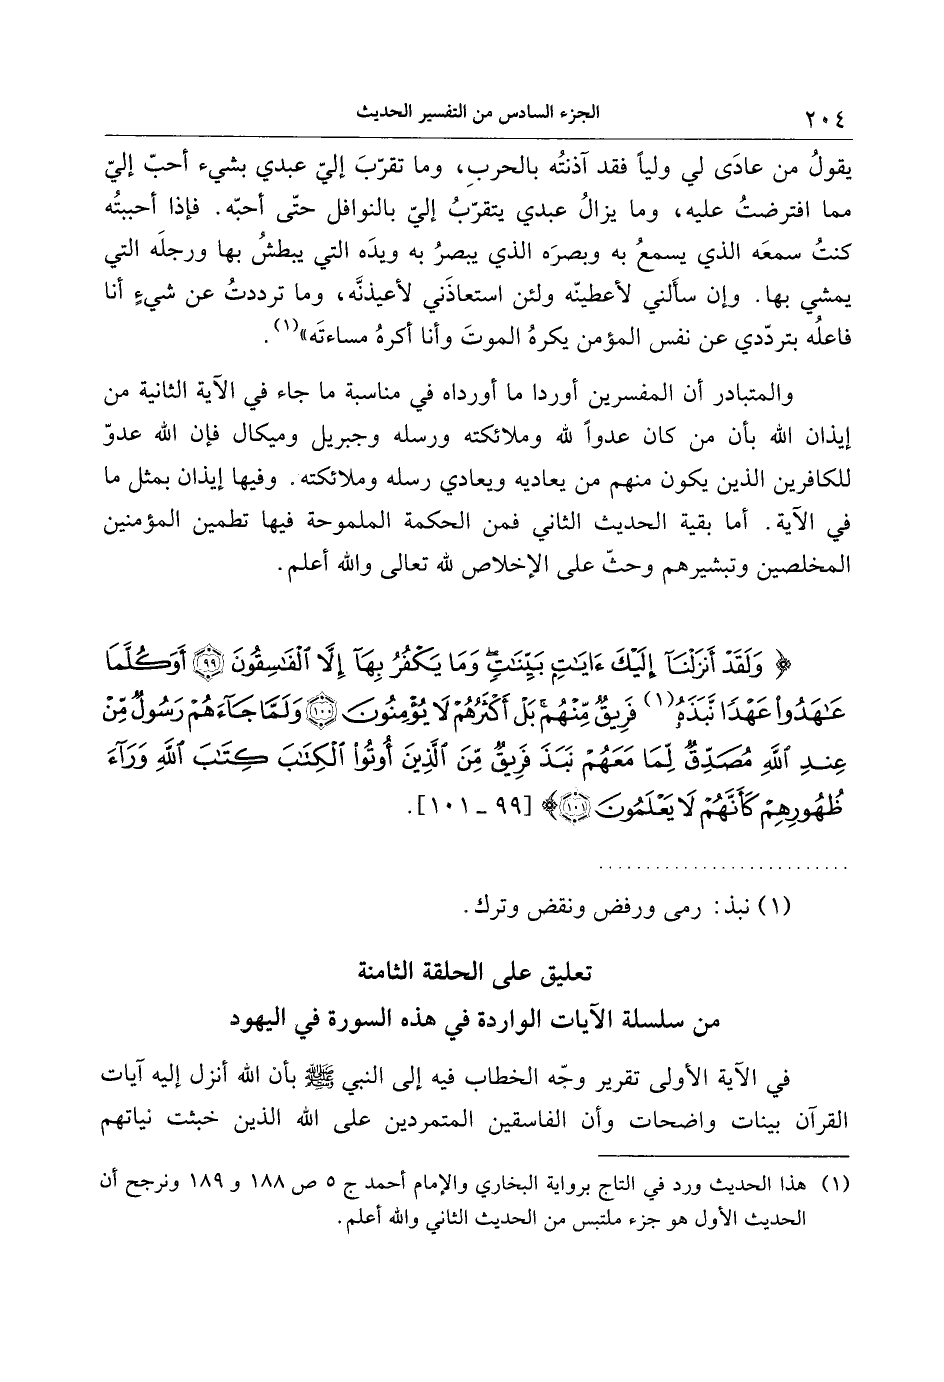 ٢٠٤ الجزء السادس من التفسير الحديث
يقولُ من عادَى لي ولياً فقد آذنتُه بالحربِ، وما تقرّبَ إليّ عبدي بشيء أحبّ إليّ
مما افترضتُ عليه، وما يزالُ عبدي يتقرّبُ إليّ بالنوافل حتّى أحبّه. فإذا أحببتُه
كنتُ سمعَه الذي يسمعُ به وبصرَه الذي يبصرُ به ويدَه التي يبطشُ بها ورجلَه التي
يمشي بها. وإن سألني لأعطينّه ولئن استعاذَني لأعيذنَّه، وما ترددتُ عن شيءٍ أنا
فاعلُه بتردّدي عن نفس المؤمن يكرهُ الموتَ وأنا أكرهُ مساءتَه»(١).
والمتبادر أن المفسرين أوردا ما أورداه في مناسبة ما جاء في الآية الثانية من
إيذان الله بأن من كان عدواً لله وملائكته ورسله وجبريل وميكال فإن الله عدوّ
للكافرين الذين يكون منهم من يعاديه ويعادي رسله وملائكته. وفيها إيذان بمثل ما
في الآية. أما بقية الحديث الثاني فمن الحكمة الملموحة فيها تطمين المؤمنين
المخلصين وتبشيرهم وحثّ على الإخلاص لله تعالى والله أعلم.
﴿ وَلَقَدْ أَنزَلْنَآ إِلَيْكَ ءَايَٰتٍۭ بَيِّنَٰتٍۖ وَمَا يَكْفُرُ بِهَآ إِلَّا ٱلْفَٰسِقُونَ ۝٩٩ أَوَكُلَّمَا
عَٰهَدُوا۟ عَهْدًا نَّبَذَهُۥ(١) فَرِيقٌ مِّنْهُمۚ بَلْ أَكْثَرُهُمْ لَا يُؤْمِنُونَ ۝١٠٠ وَلَمَّا جَآءَهُمْ رَسُولٌ مِّنْ
عِندِ ٱللَّهِ مُصَدِّقٌ لِّمَا مَعَهُمْ نَبَذَ فَرِيقٌ مِّنَ ٱلَّذِينَ أُوتُوا۟ ٱلْكِتَٰبَ كِتَٰبَ ٱللَّهِ وَرَآءَ
ظُهُورِهِمْ كَأَنَّهُمْ لَا يَعْلَمُونَ ۝١٠١﴾ [٩٩ ـ ١٠١].
..........................
(١) نبذ: رمى ورفض ونقض وترك.
تعليق على الحلقة الثامنة
من سلسلة الآيات الواردة في هذه السورة في اليهود
في الآية الأولى تقرير وجّه الخطاب فيه إلى النبي ﷺ بأن الله أنزل إليه آيات
القرآن بينات واضحات وأن الفاسقين المتمردين على الله الذين خبثت نياتهم
(١) هذا الحديث ورد في التاج برواية البخاري والإمام أحمد ج ٥ ص ١٨٨ و ١٨٩ ونرجح أن
الحديث الأول هو جزء ملتبس من الحديث الثاني والله أعلم.